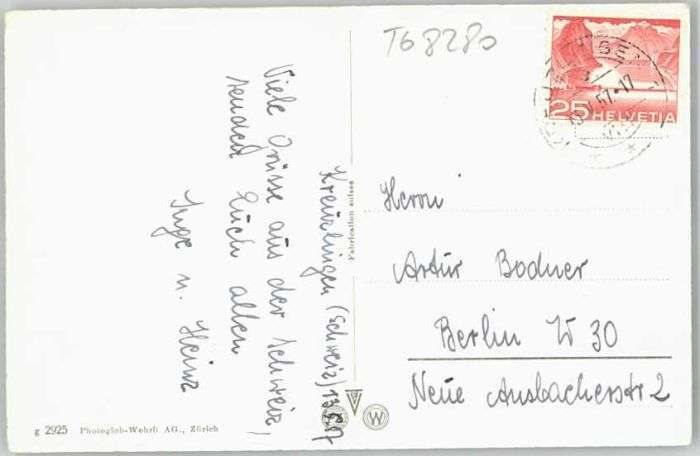 T68280
25 HELVETIA
Kreuzlingen (Schweiz)
Viele Grüsse aus der Schweiz
sendet Euch allen
Inge u. Heinz
Fabrication suisse
Herrn
Artur Bodner
Berlin W 30
Neue Ansbacherstr 2
W
g 2925 Photoglob-Wehrli AG., Zürich